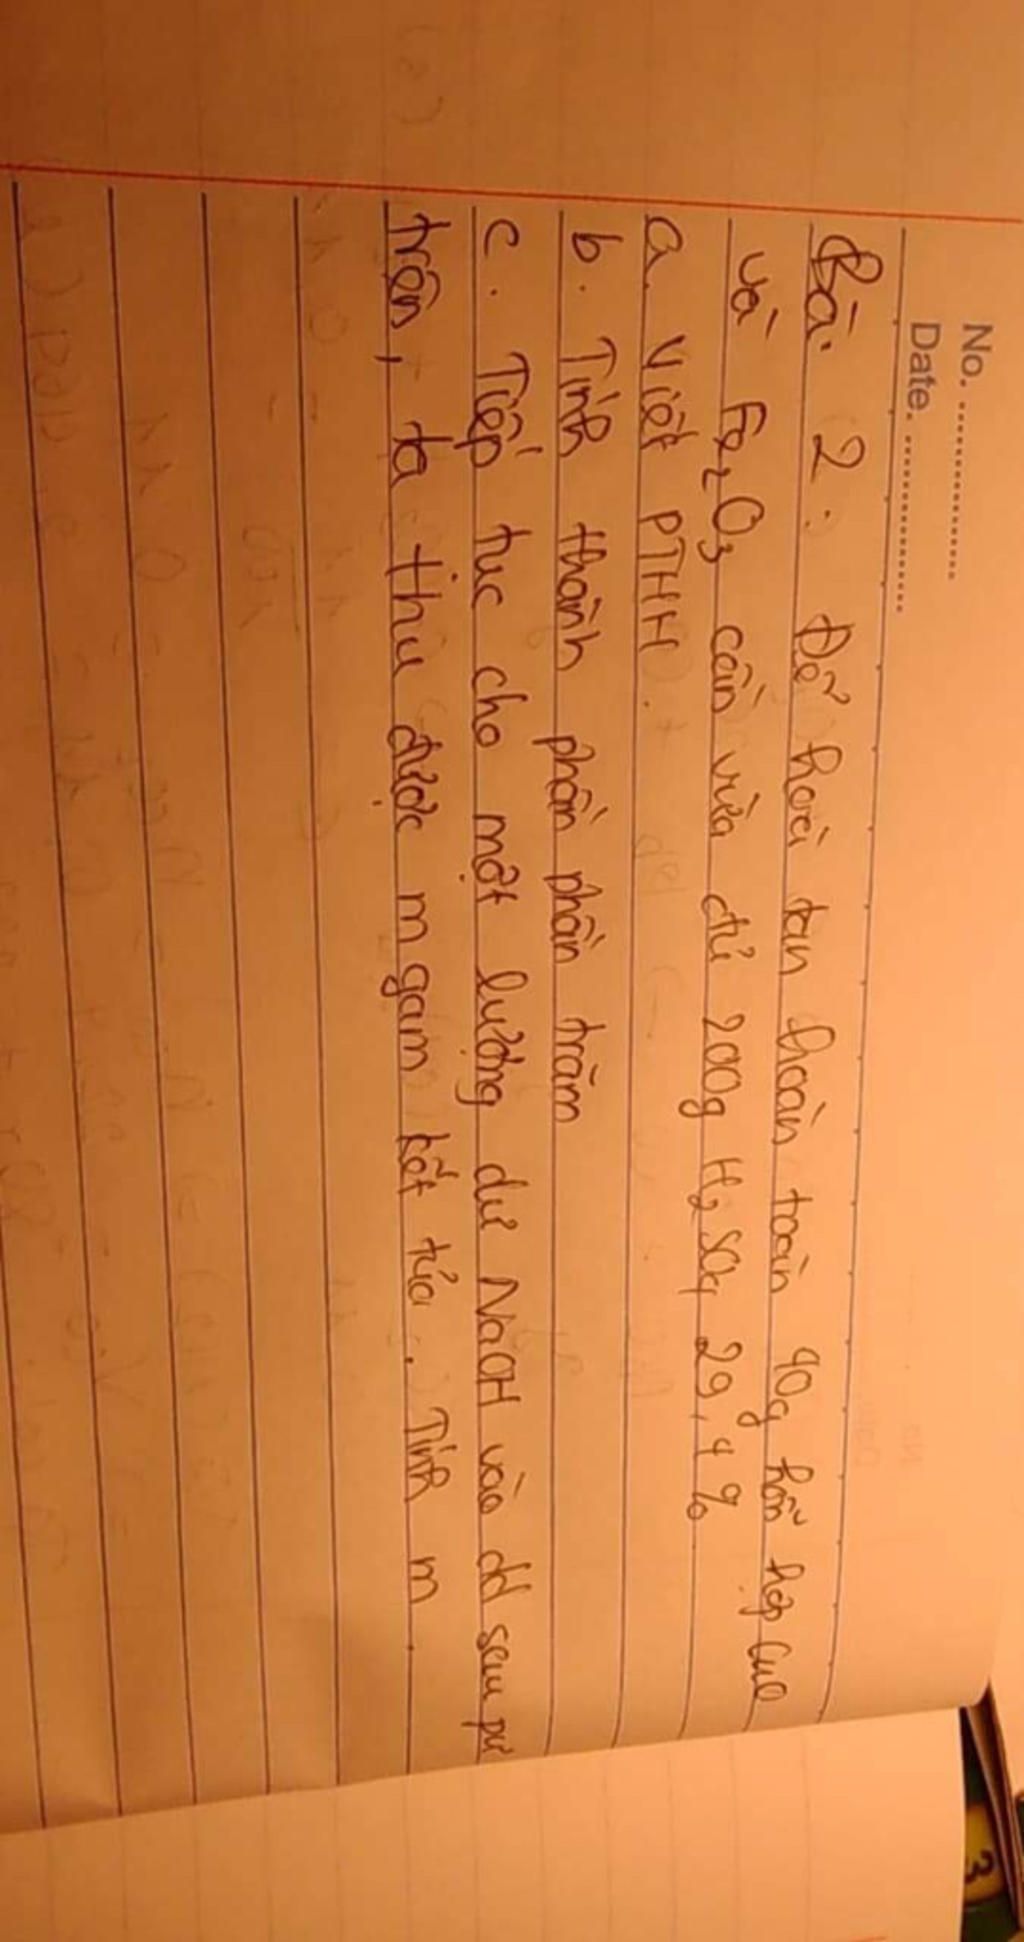 No. ................
Date. ................
Bài 2: Để hoà tan hoàn toàn 40g hỗn hợp CuO
và Fe2O3 cần vừa đủ 200g H2SO4 29,4%
a. Viết PTHH.
b. Tính thành phần phần trăm
c. Tiếp tục cho một lượng dư NaOH vào dd sau pư
trên, ta thu được m gam kết tủa. Tính m
3